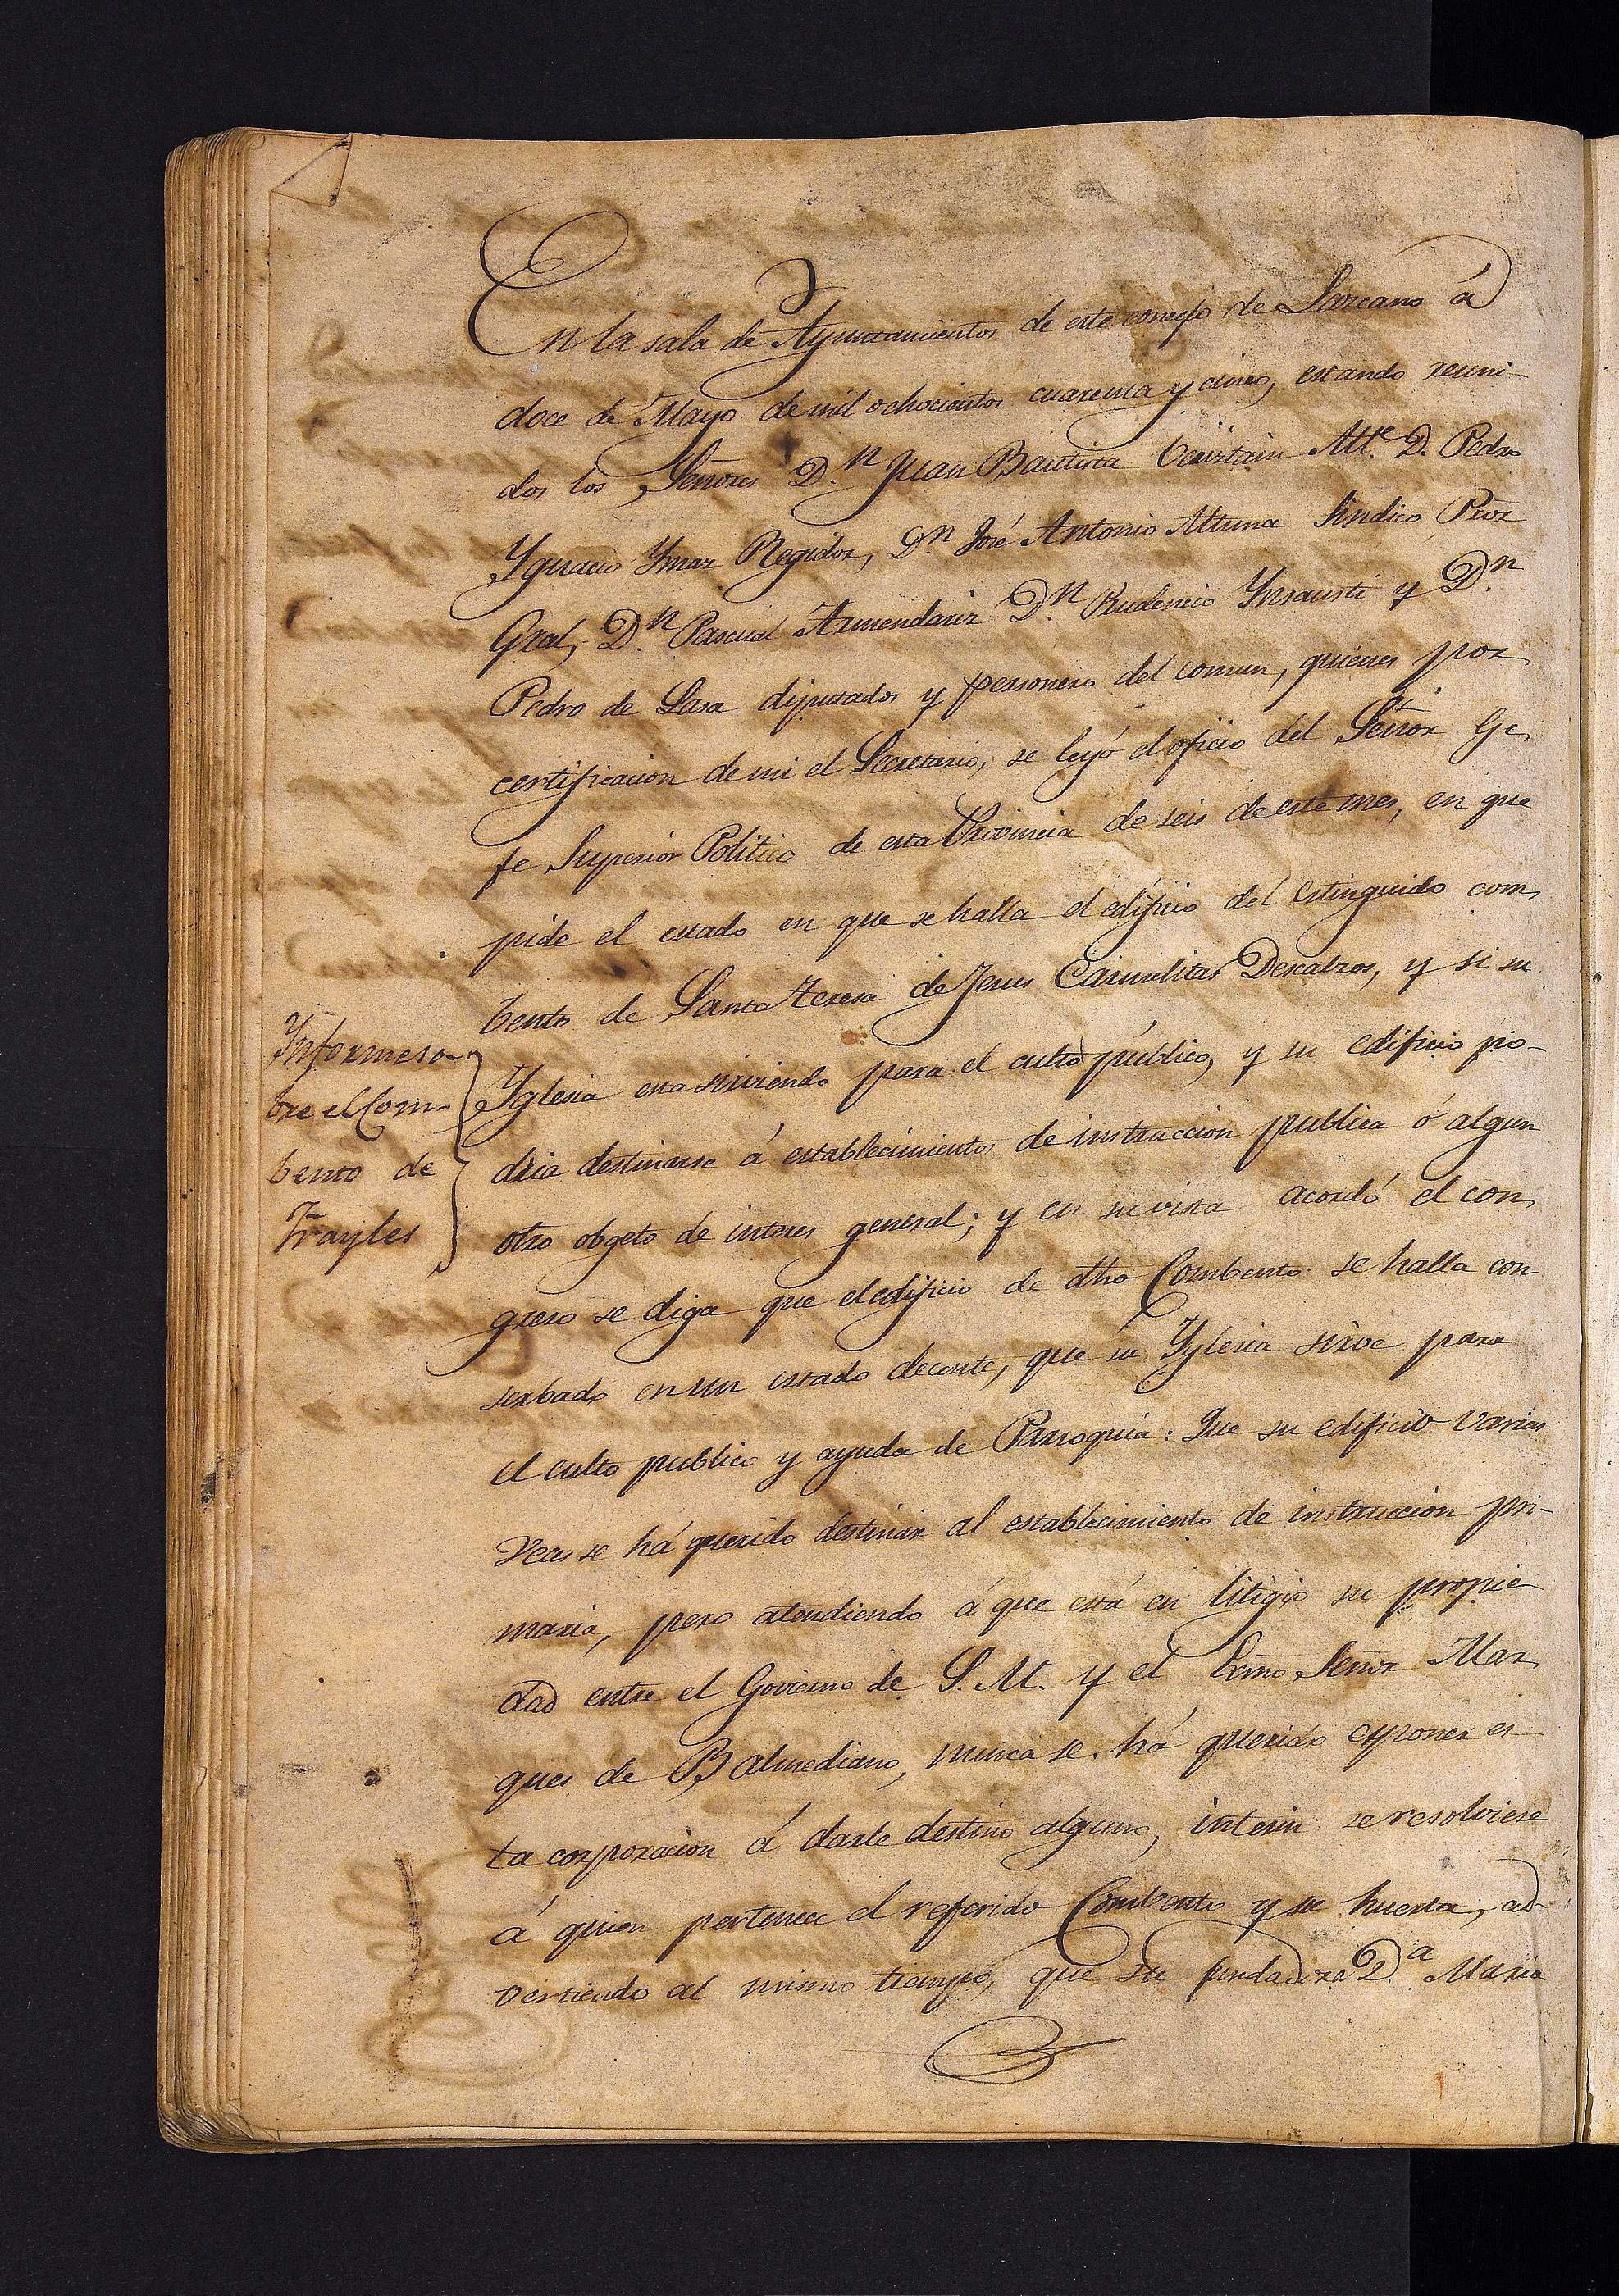 En la sala de Ayuntamientos de este concejo de Lazcano á
doce de Mayo de mil ochocientos cuarenta y cinco, estando reuni-
dos los Señores D.n Juan Bautista Alt.e D. Pedro
Ygnacio Ymaz Regidor, D.n José Antonio Altuna Sindico Pror
Gral, D.n Pascual Armendariz D.n Prudencio Ynsausti y D.n
Pedro de Lasa diputados y personero del comun, quienes por
certificacion de mi el Secretario, se leyó el oficio del Señor Ge
fe Superior Politico de esta Provincia de seis de este mes, en que
pide el estado en que se halla el edificio del estinguido com
bento de Santa Teresa de Jesus Carmelitas Descalzos, y si su
Yglesia esta sirviendo para el culto público, y su edificio po-
dria destinarse á establecimientos de instruccion publica ó algun
otro objeto de interes general; y en su vista acordó el con
greso se diga que el edificio de dho Combento se halla con
serbado en un estado decente, que su Yglesia sirve para
el culto publico y ayuda de Parroquia: Que su edificio varias
veces se há querido destinar al establecimiento de instruccion pri-
maria, pero atendiendo á que está en litigio su propie
dad entre el Govierno de S. M. y el Exmo Señor Mar
ques de Balmediano, nunca se há querido esponer es
ta corporacion á darle destino alguno, interin se resolviese
á quien pertenece el referido Combento y su huerta, ad
vertiendo al mismo tiempo, que su fundadora D.a Maria
Informe so-
bre el Com-
bento de
Frayles